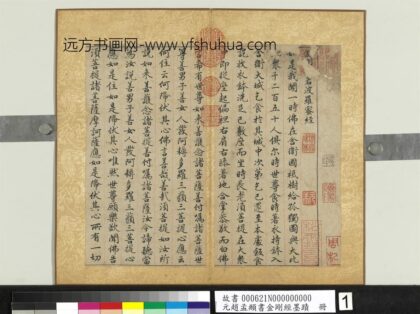 远方书画网-www.yfshuhua.com
若波羅蜜經
如是我聞一時佛在舍衛國祇樹給孤獨園與大比
丘衆千二百五十人俱尔時世尊食時著衣持鉢
舍衛大城乞食於其城中次第乞已還至本處飯食
訖收衣鉢洗足已敷座而坐時長老湏菩提在大衆
中即從座起偏袒右肩右膝著地合掌恭敬而白佛
言希有世尊如來善護念諸菩薩善付囑諸菩薩世
尊善男子善女人發阿耨多羅三藐三菩提心應云
何住云何降伏其心佛言善哉善哉湏菩提如汝所
說如來善護念諸菩薩善付囑諸菩薩汝今諦聽當
為汝說善男子善女人發阿耨多羅三藐三菩提心
應如是住如是降伏其心唯然世尊願樂欲聞佛告
湏菩提諸菩薩摩訶薩應如是降伏其心所有一切
故書 000621N000000000
元趙孟頫書金剛經墨蹟 冊
1